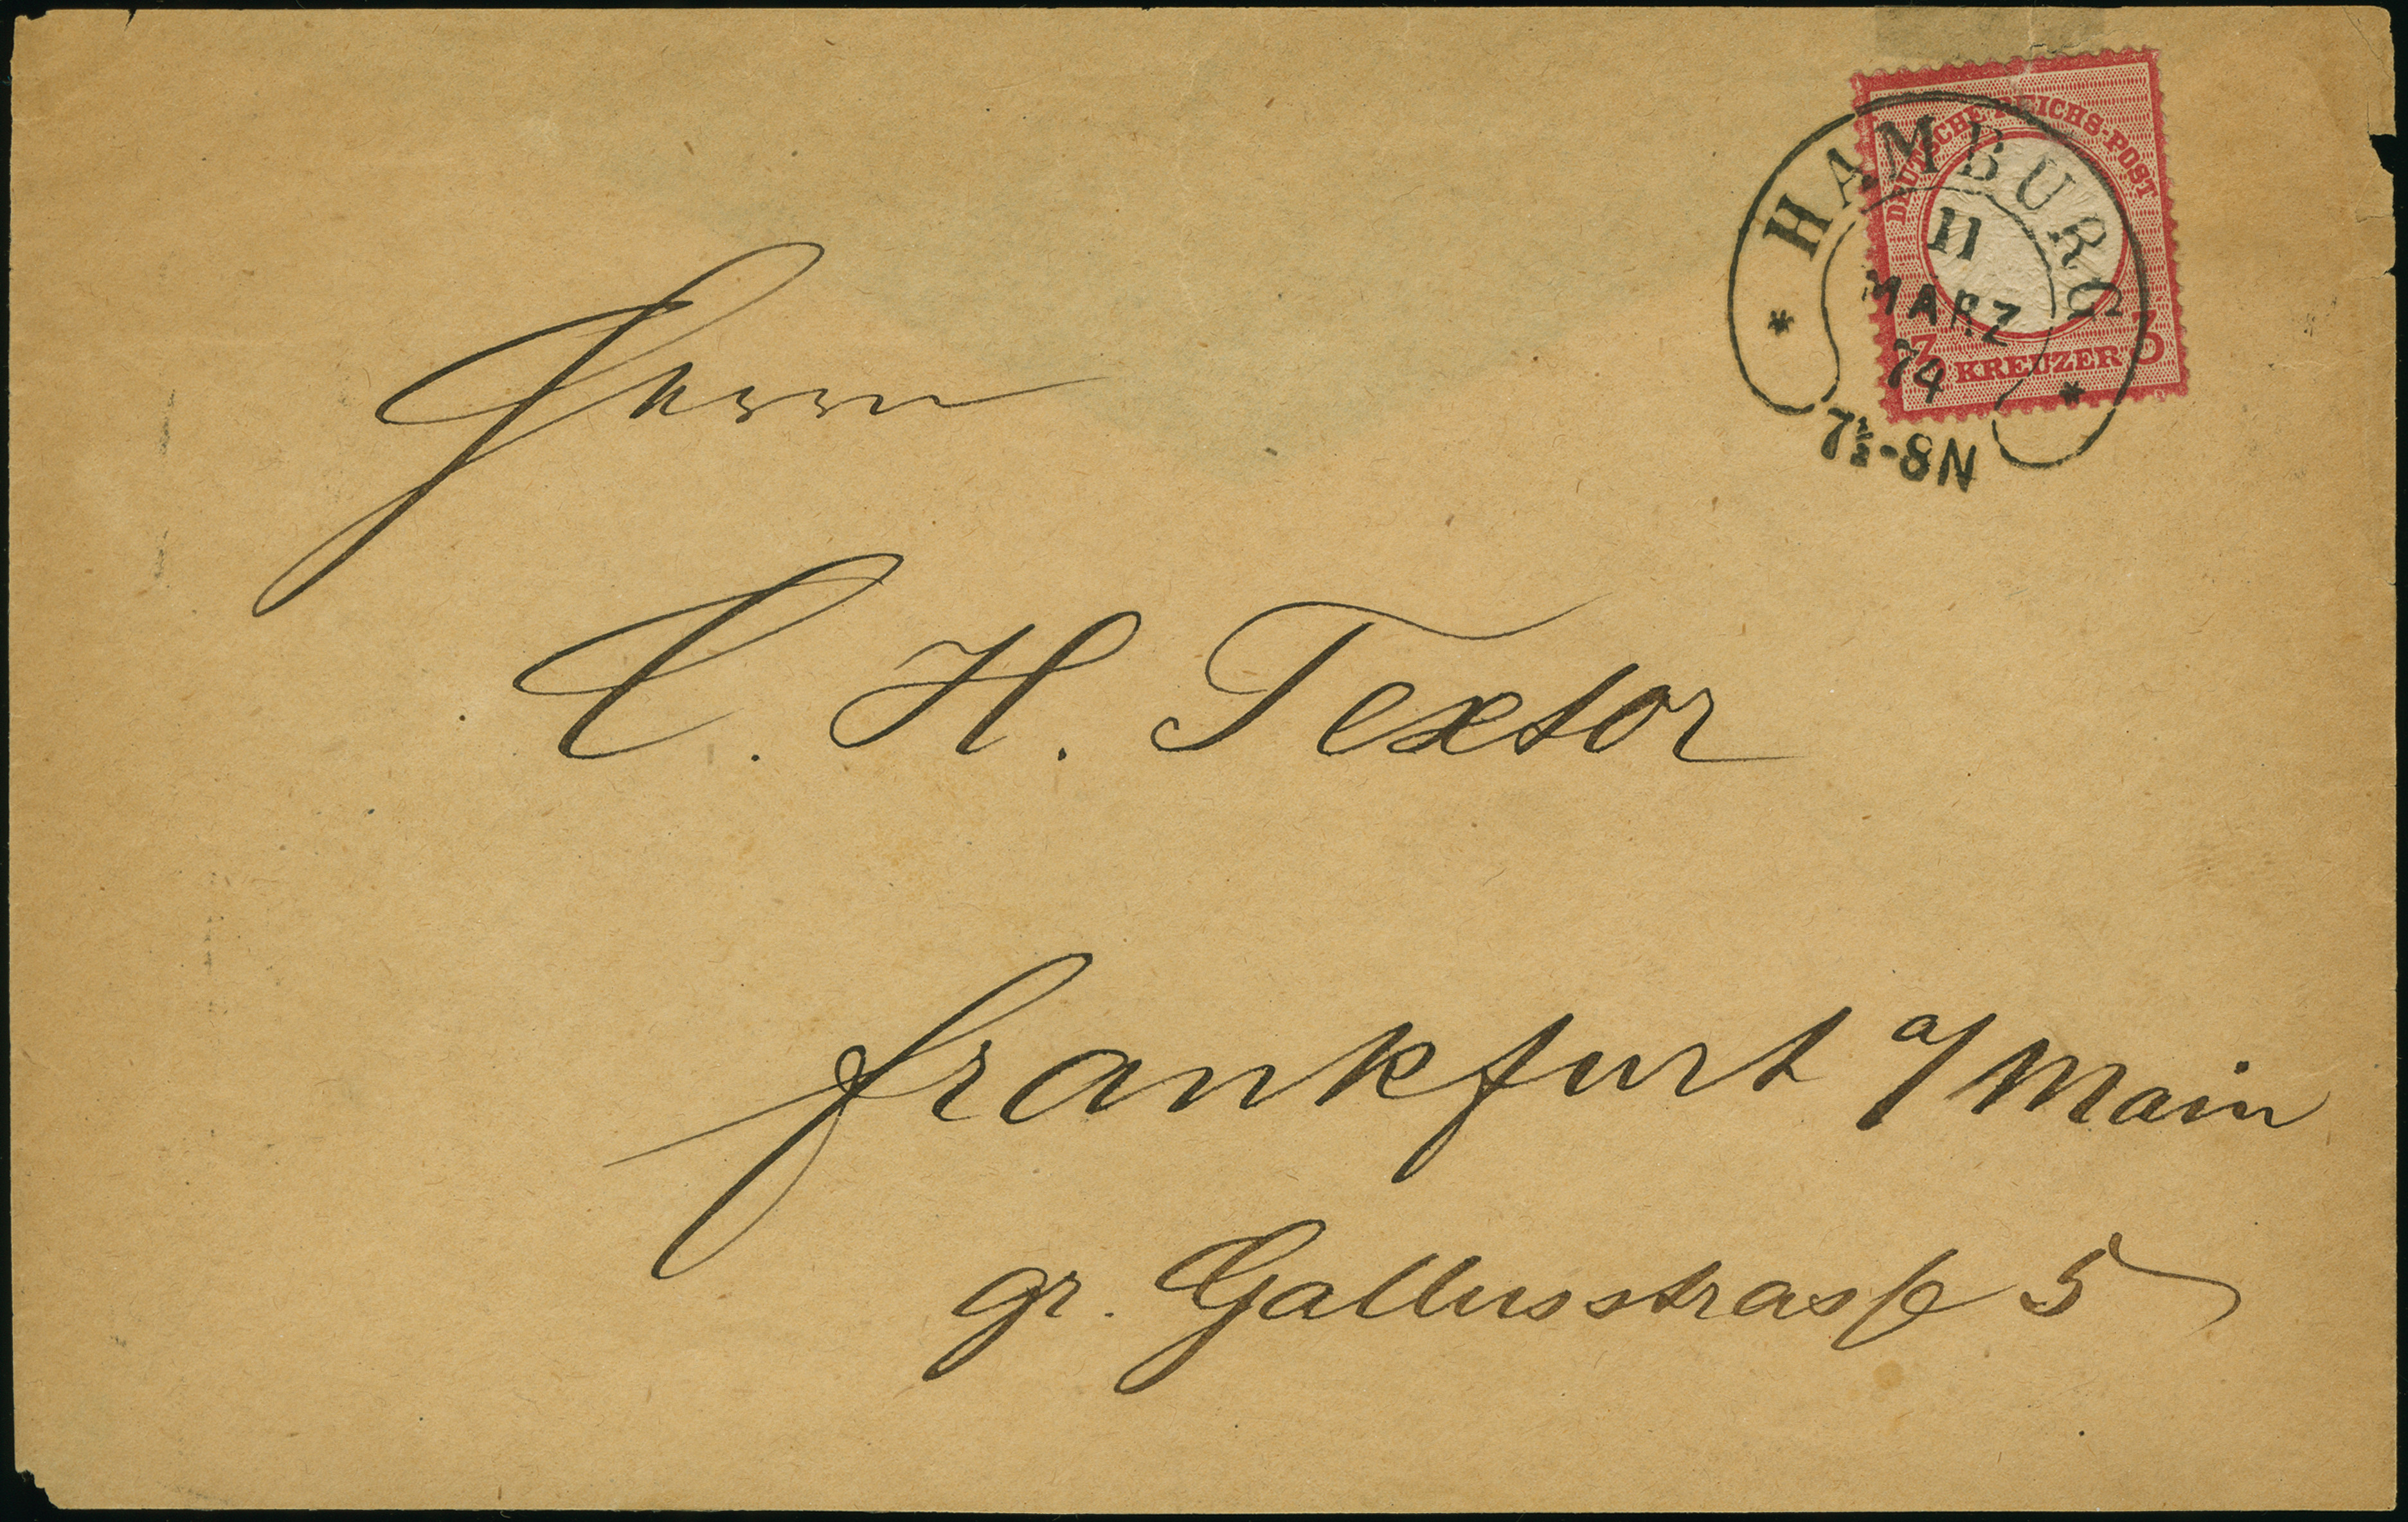 DEUTSCHE REICHS-POST
3 KREUZER 3
* HAMBURG *
11
MÄRZ
74
7½-8N
Herrn
C. H. Textor
Frankfurt a/Main
gr. Gallusstrasse 5